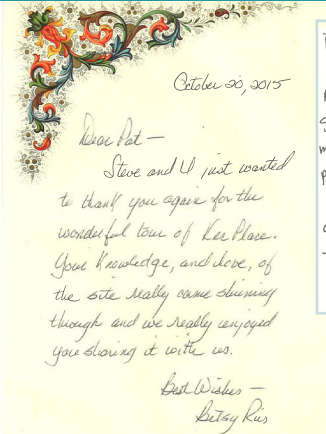 October 20, 2015
Dear Pat —
Steve and I just wanted
to thank you again for the
wonderful tour of Ker Place.
Your knowledge, and love, of
the site really came shining
through and we really enjoyed
you sharing it with us.
Best Wishes —
Betsy